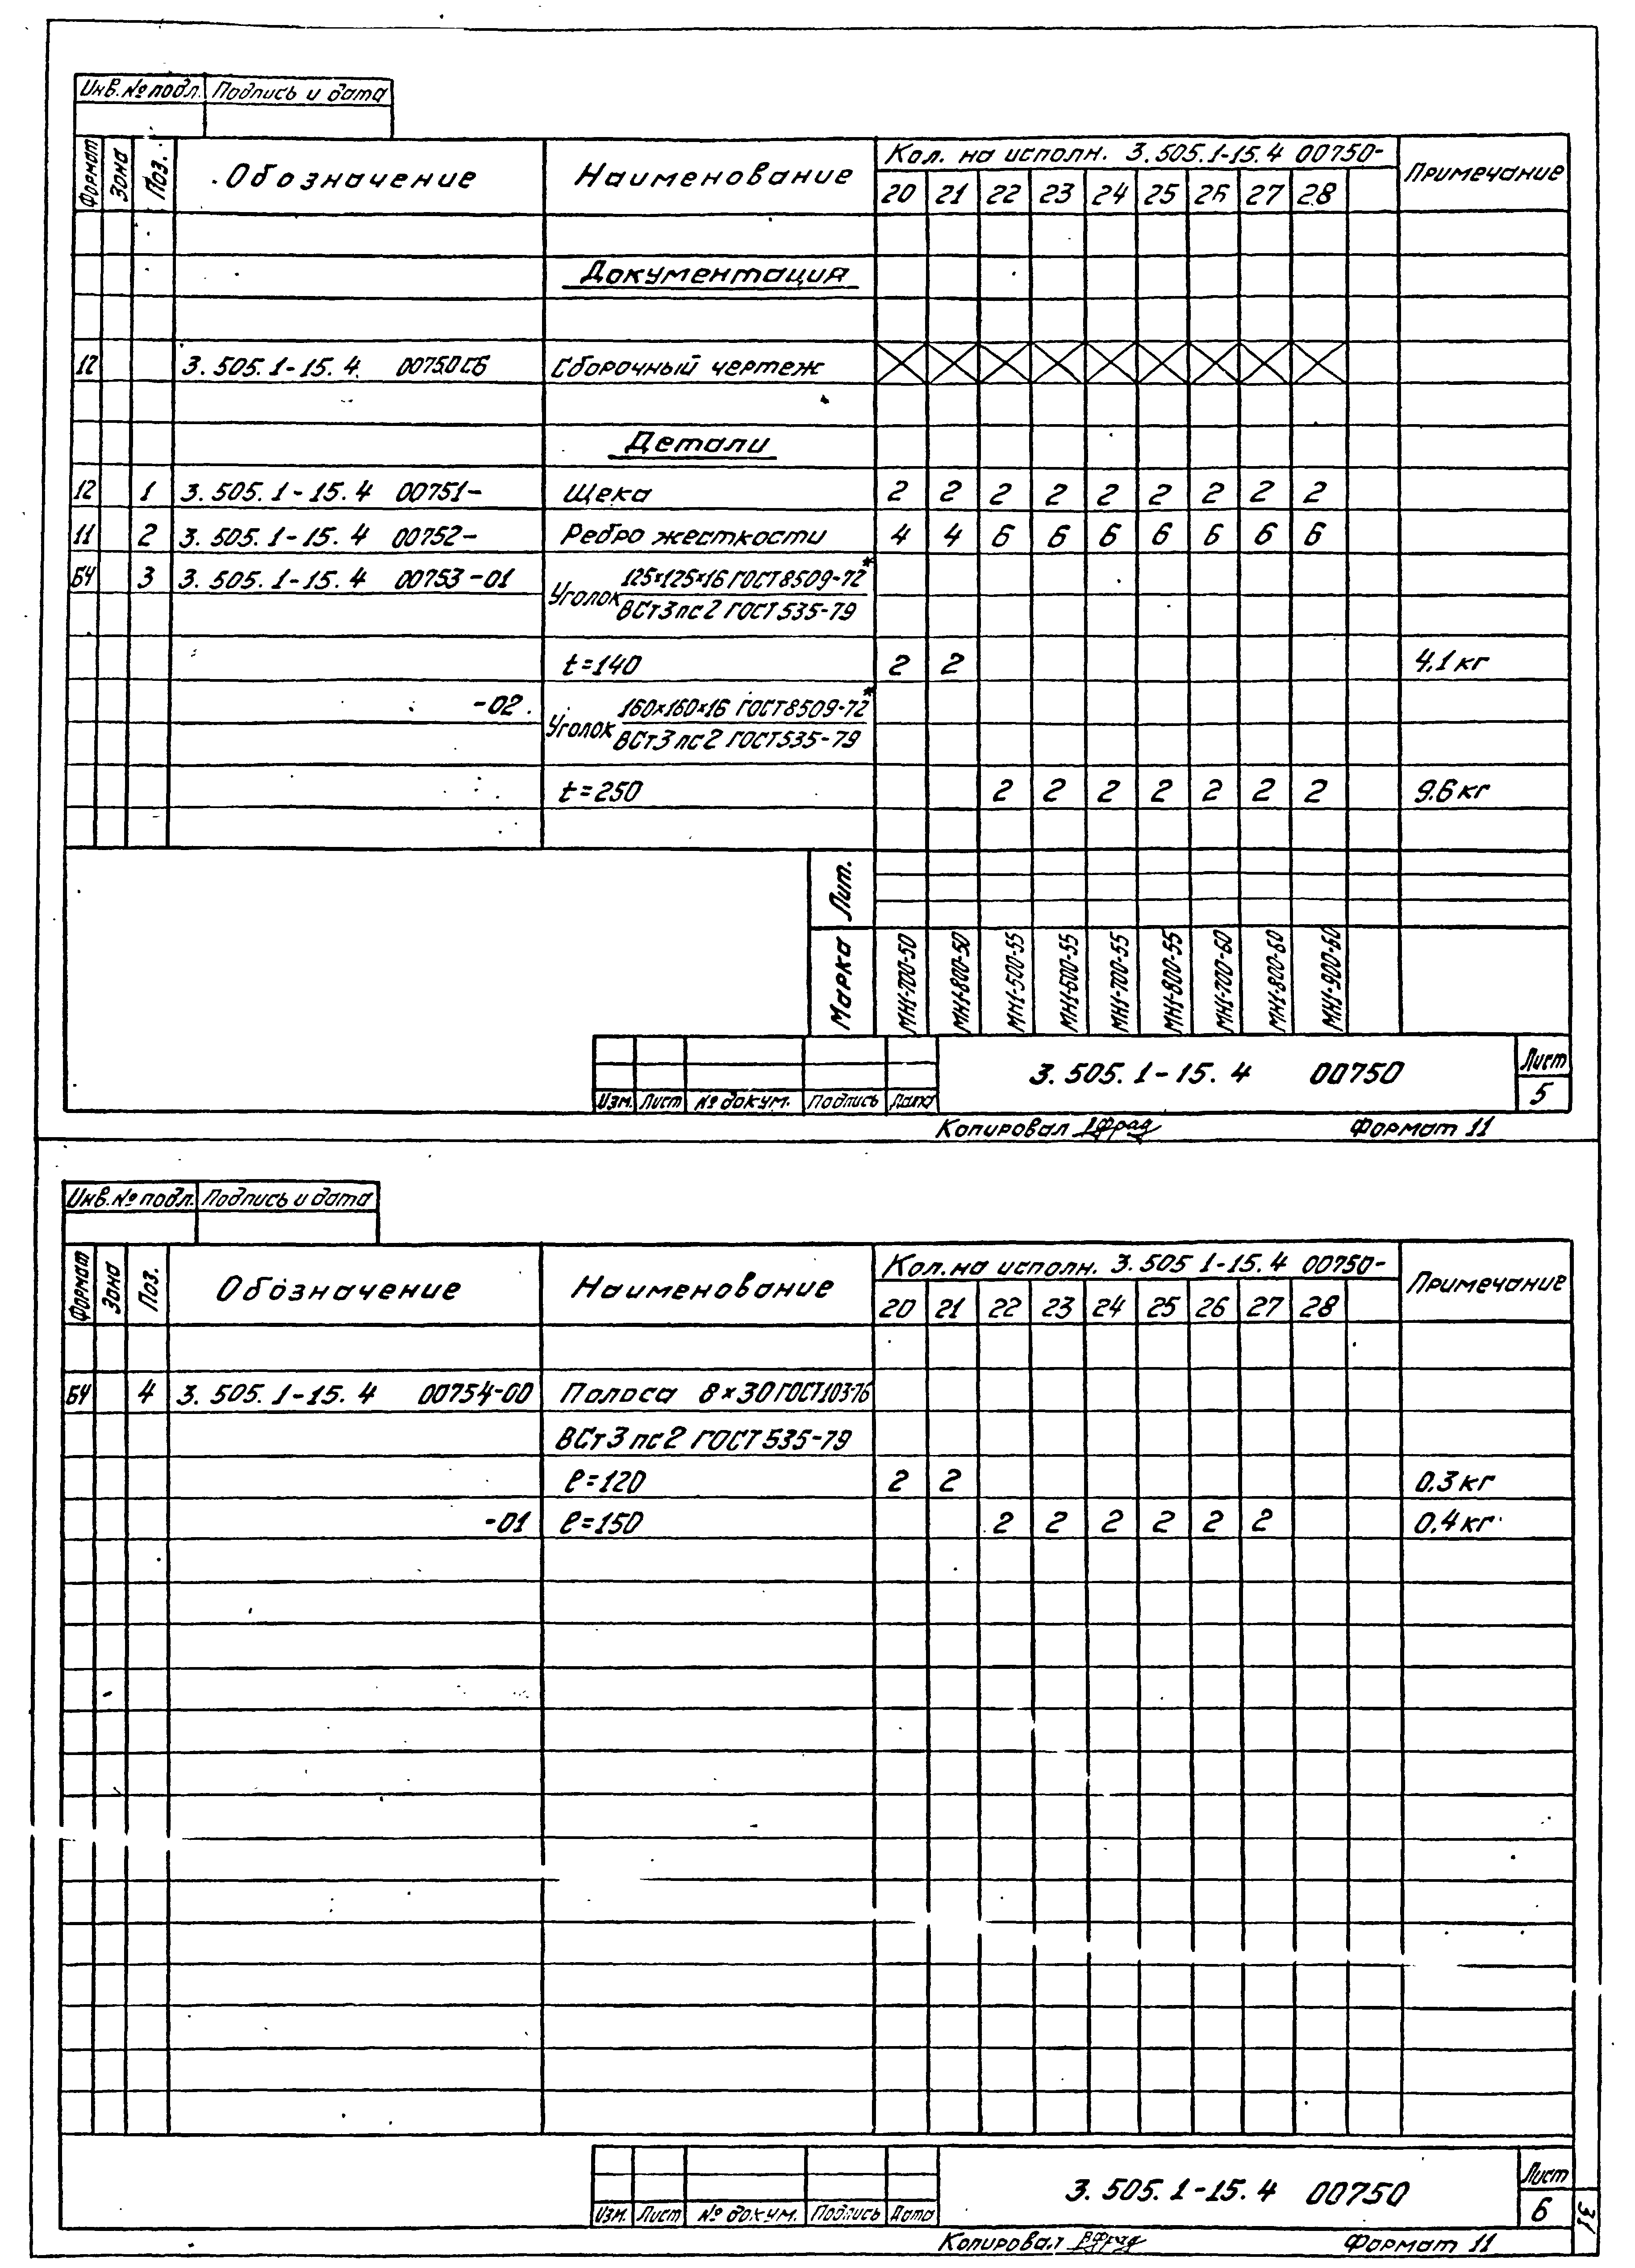 Инв.№ подл. Подпись и дата
Формат Зона Поз. Обозначение Наименование Кол. на исполн. 3.505.1-15.4 00750- Примечание
20 21 22 23 24 25 26 27 28
Документация
12 3.505.1-15.4 00750СБ Сборочный чертеж
Детали
12 1 3.505.1-15.4 00751- Щека 2 2 2 2 2 2 2 2 2
11 2 3.505.1-15.4 00752- Ребро жесткости 4 4 6 6 6 6 6 6 6
БЧ 3 3.505.1-15.4 00753-01 Уголок 125×125×16 ГОСТ 8509-72*
ВСт3пс2 ГОСТ 535-79
t=140 2 2 4.1 кг
-02. Уголок 160×160×16 ГОСТ 8509-72*
ВСт3пс2 ГОСТ 535-79
t=250 2 2 2 2 2 2 2 9.6 кг
Лит.
Марка МН1-700-50 МН1-800-50 МН1-500-55 МН1-600-55 МН1-700-55 МН1-800-55 МН1-700-60 МН1-800-60 МН1-900-60
3.505.1-15.4 00750 Лист
5
Изм. Лист № докум. Подпись Дата
Копировал Формат 11
Инв.№ подл. Подпись и дата
Формат Зона Поз. Обозначение Наименование Кол.на исполн. 3.505 1-15.4 00750- Примечание
20 21 22 23 24 25 26 27 28
БЧ 4 3.505.1-15.4 00754-00 Полоса 8×30 ГОСТ 103-76
ВСт3пс2 ГОСТ 535-79
ℓ=120 2 2 0.3 кг
-01 ℓ=150 2 2 2 2 2 2 0.4 кг
3.505.1-15.4 00750 Лист
6
Изм. Лист № докум. Подпись Дата
31
Копировал Формат 11